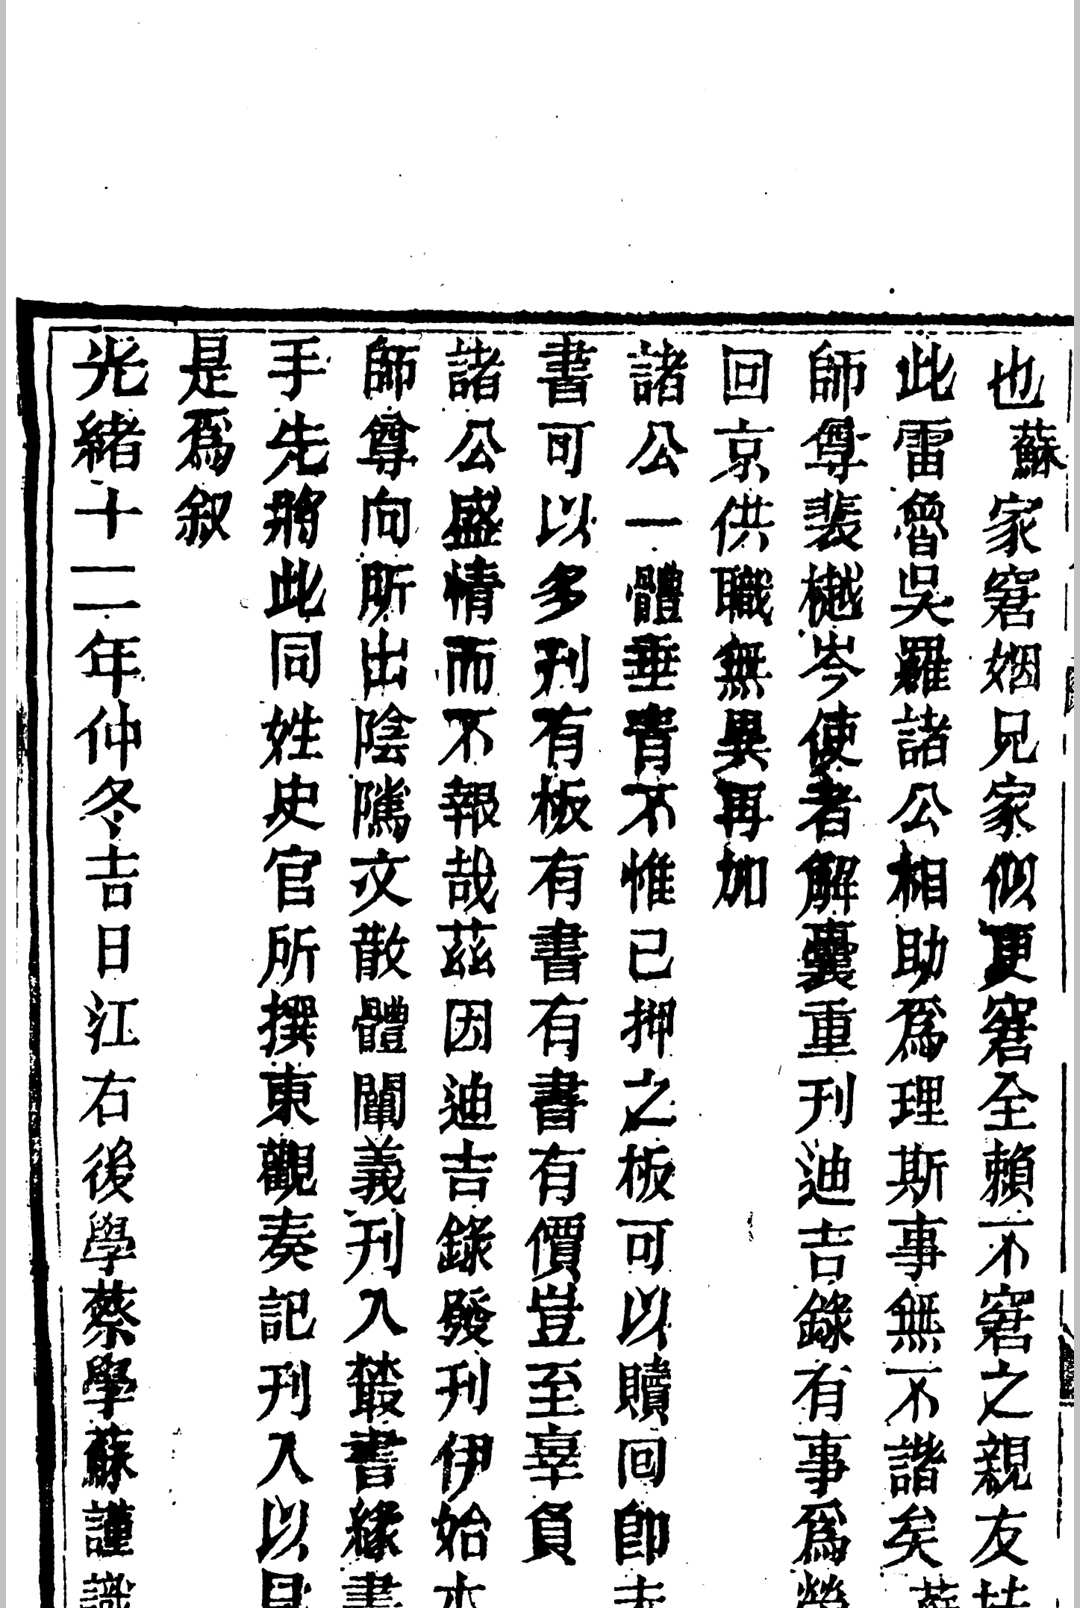 也蘇家窘姻兄家似更窘全賴不窘之親友扶
此雷魯吳羅諸公相助爲理斯事無不諧矣蘇
師尊裴樾岑使者解囊重刊迪吉錄有事爲勞
回京供職無異再加
諸公一體垂青不惟已押之板可以贖回卽未
書可以多刊有板有書有書有價豈至辜負
諸公盛情而不報哉茲因迪吉錄發刊伊始本
師尊向所出陰隲文散體闡義刊入叢書緣書
手先將此同姓史官所撰東觀奏記刊入以
是爲叙
光緒十二年仲冬吉日江右後學蔡學蘇謹識